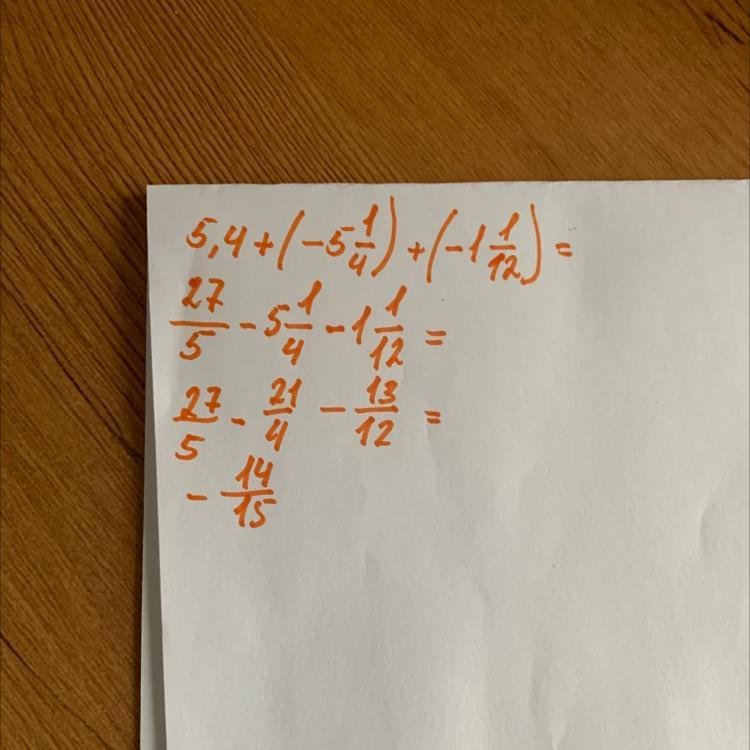 5,4 + (-5 1/4) + (-1 1/12) =
27/5 - 5 1/4 - 1 1/12 =
27/5 - 21/4 - 13/12 =
- 14/15